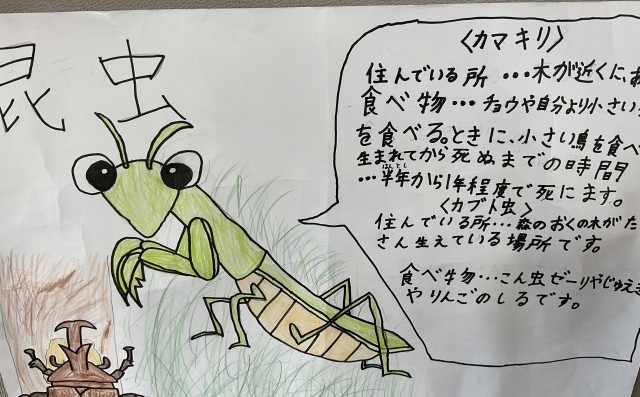 昆虫
〈カマキリ〉
住んでいる所…木が近くに、あ
食べ物…チョウや自分より小さい
を食べる。ときに、小さい鳥を食べ
生まれてから死ぬまでの時間
はんとし
…半年から1年程度で死にます。
〈カブト虫〉
住んでいる所…森のおくの木がた
さん生えている場所です。
食べ物…こん虫ゼーリやじゅえき
やりんごのしるです。